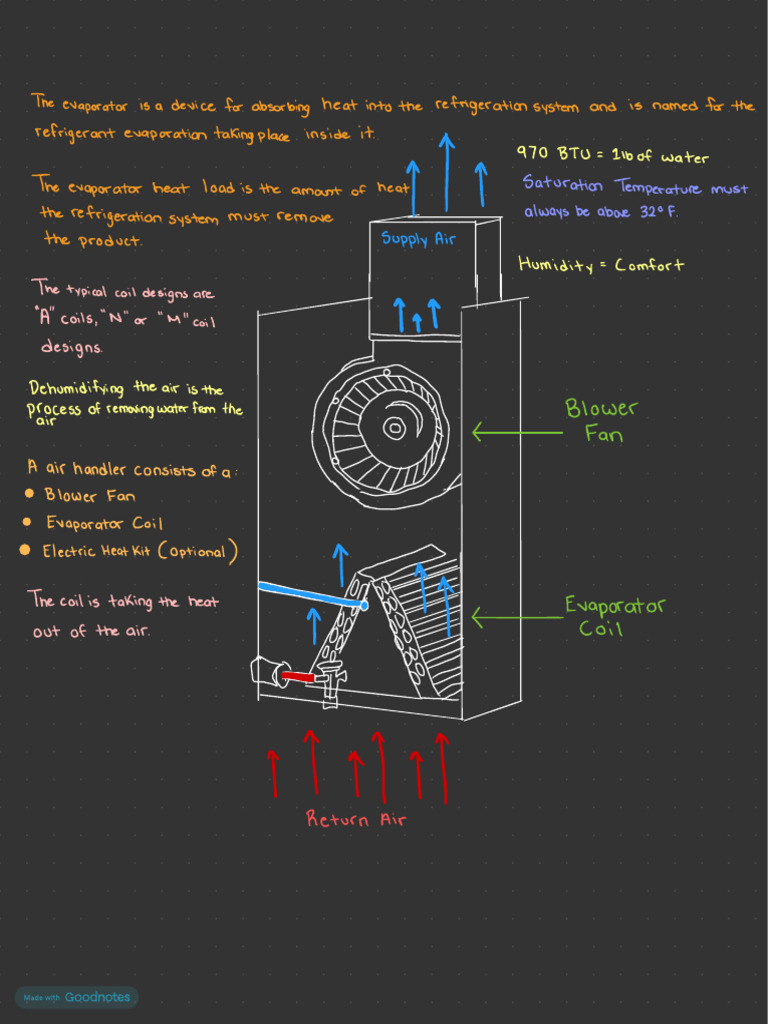 The evaporator is a device for absorbing heat into the refrigeration system and is named for the
refrigerant evaporation taking place inside it.
The evaporator heat load is the amount of heat
the refrigeration system must remove
the product.
The typical coil designs are
"A" coils, "N" or "M" coil
designs.
Dehumidifying the air is the
process of removing water from the
air
A air handler consists of a:
• Blower Fan
• Evaporator Coil
• Electric Heat Kit (Optional)
The coil is taking the heat
out of the air.
970 BTU = 1lb of water
Saturation Temperature must
always be above 32° F.
Humidity = Comfort
Supply Air
Blower
Fan
Evaporator
Coil
Return Air
Made with Goodnotes